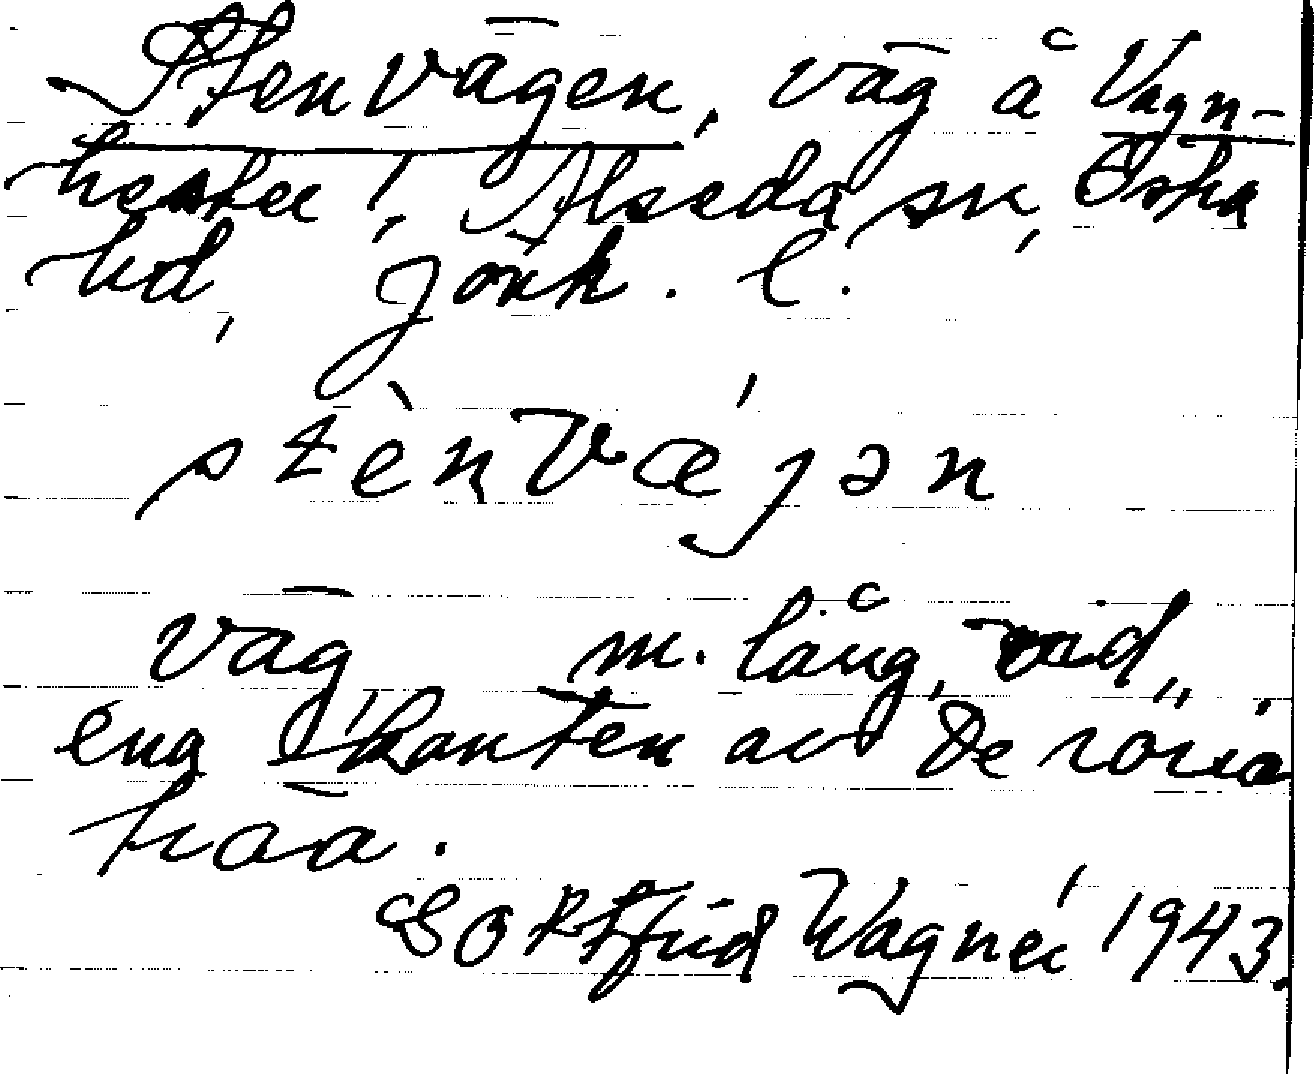 Stenvägen, väg å Vagn-
hester, Alseda sn, Östra
hd, Jönk. l.
stènvǽjən
väg m. lång, vid,
eng I kanten av De röria
trää.
Gottfrid Wagnér 1943.